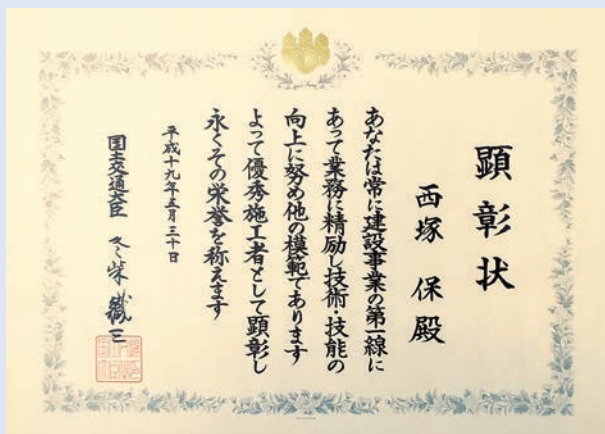 顕彰状
西塚 保殿
あなたは常に建設事業の第一線に
あって業務に精励し技術・技能の
向上に努め他の模範であります
よって優秀施工者として顕彰し
永くその栄誉を称えます
平成十九年五月三十日
国土交通大臣 冬柴鐵三